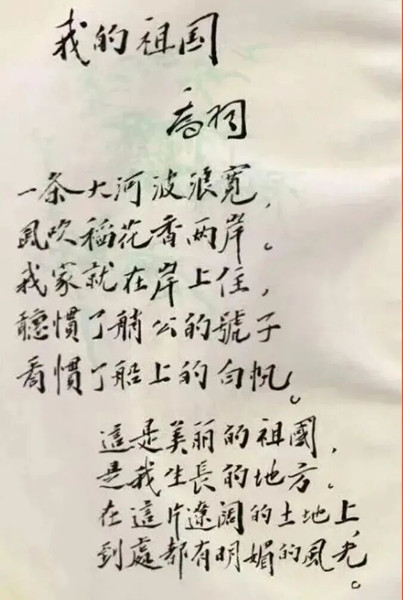 我的祖国
乔羽
一条大河波浪宽，
风吹稻花香两岸。
我家就在岸上住，
聽慣了艄公的號子
看慣了船上的白帆。
這是美丽的祖國，
是我生長的地方。
在這片遼阔的土地上，
到處都有明媚的風光。